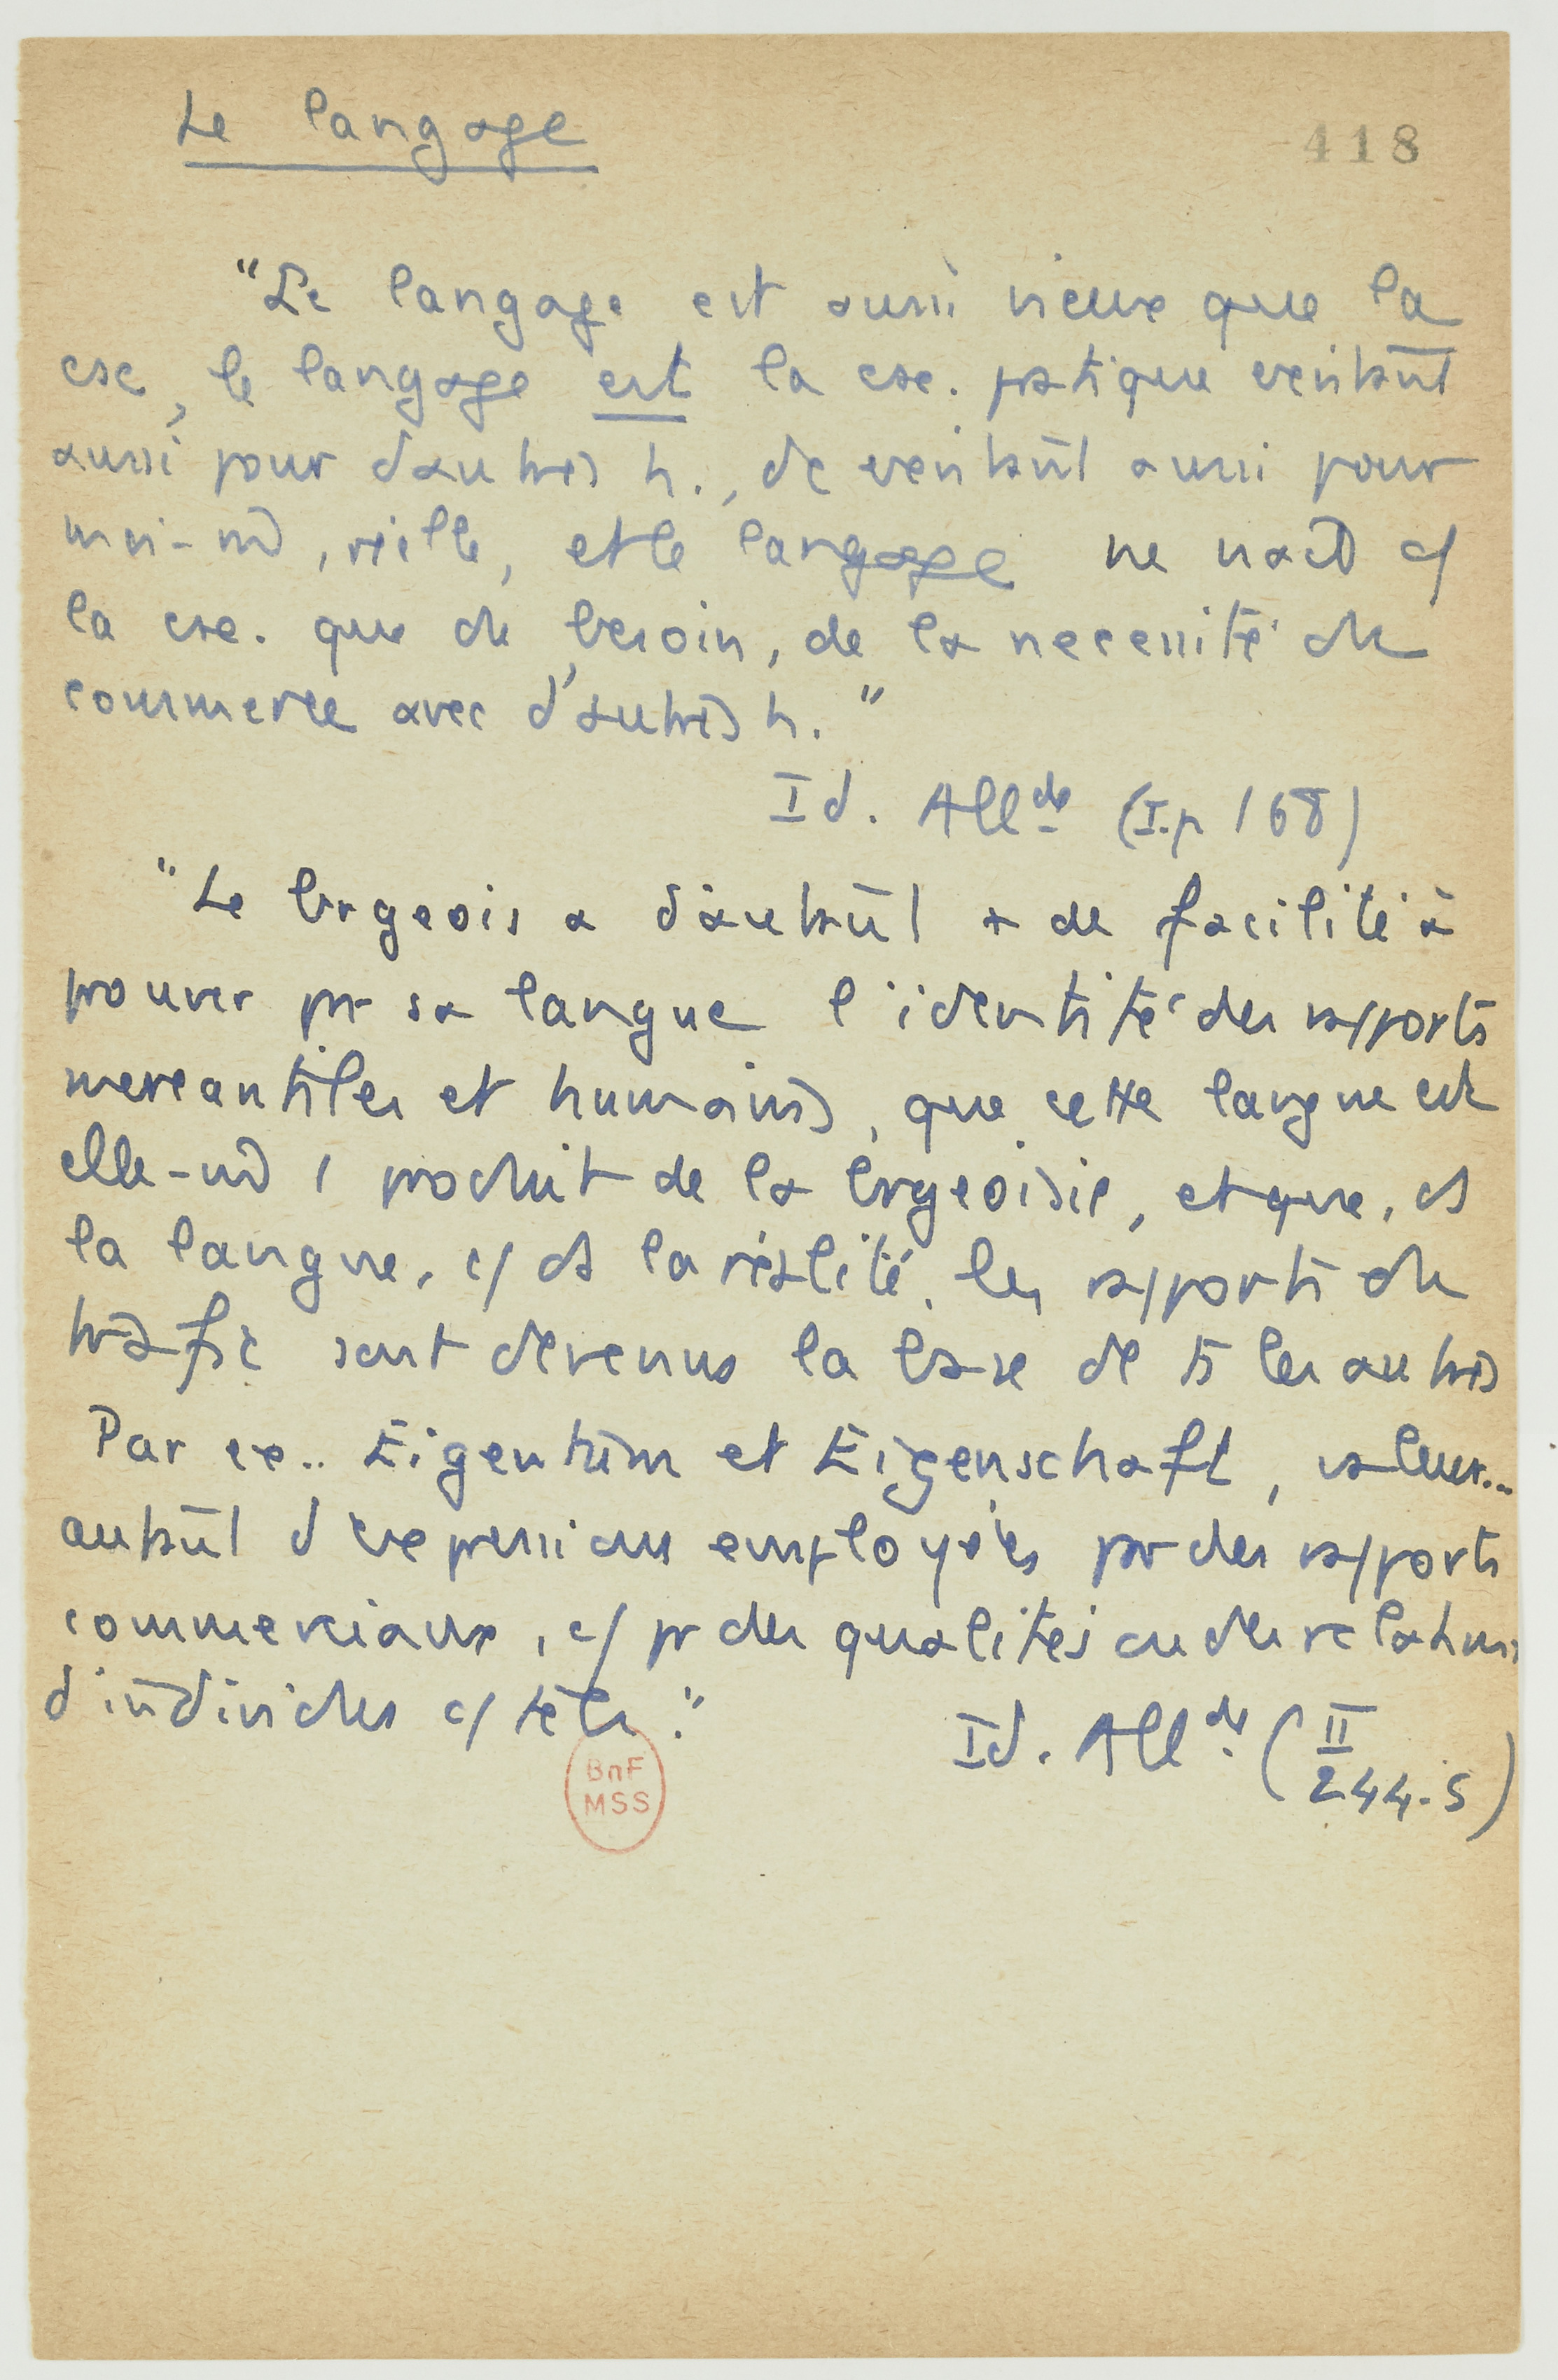 Le langage
418
"Le langage est aussi vieux que la
csc, le langage est la csc. pratique existant
aussi pour d'autres h., de existant aussi pour
moi-m̂, réelle, et le langage ne naît c/
la csc. que du besoin, de la nécessité du
commerce avec d'autres h."
Id. All.de (I.p 168)
"Le brgeois a d'autant + de facilité à
prouver pr sa langue l'identité des rapports
mercantiles et humains, que cette langue est
elle-m̂ 1 produit de la brgeoisie, et que, ds
la langue, c/ ds la réalité, les rapports du
trafic sont devenus la base de ts les autres
Par ex.. Eigentum et Eigenschaft, valeur...
autant d'expressions employées pr des rapports
commerciaux, c/ pr des qualités ou des relations
d'individus c/ tels."
Id. All.de (II
244-5)
BnF
MSS